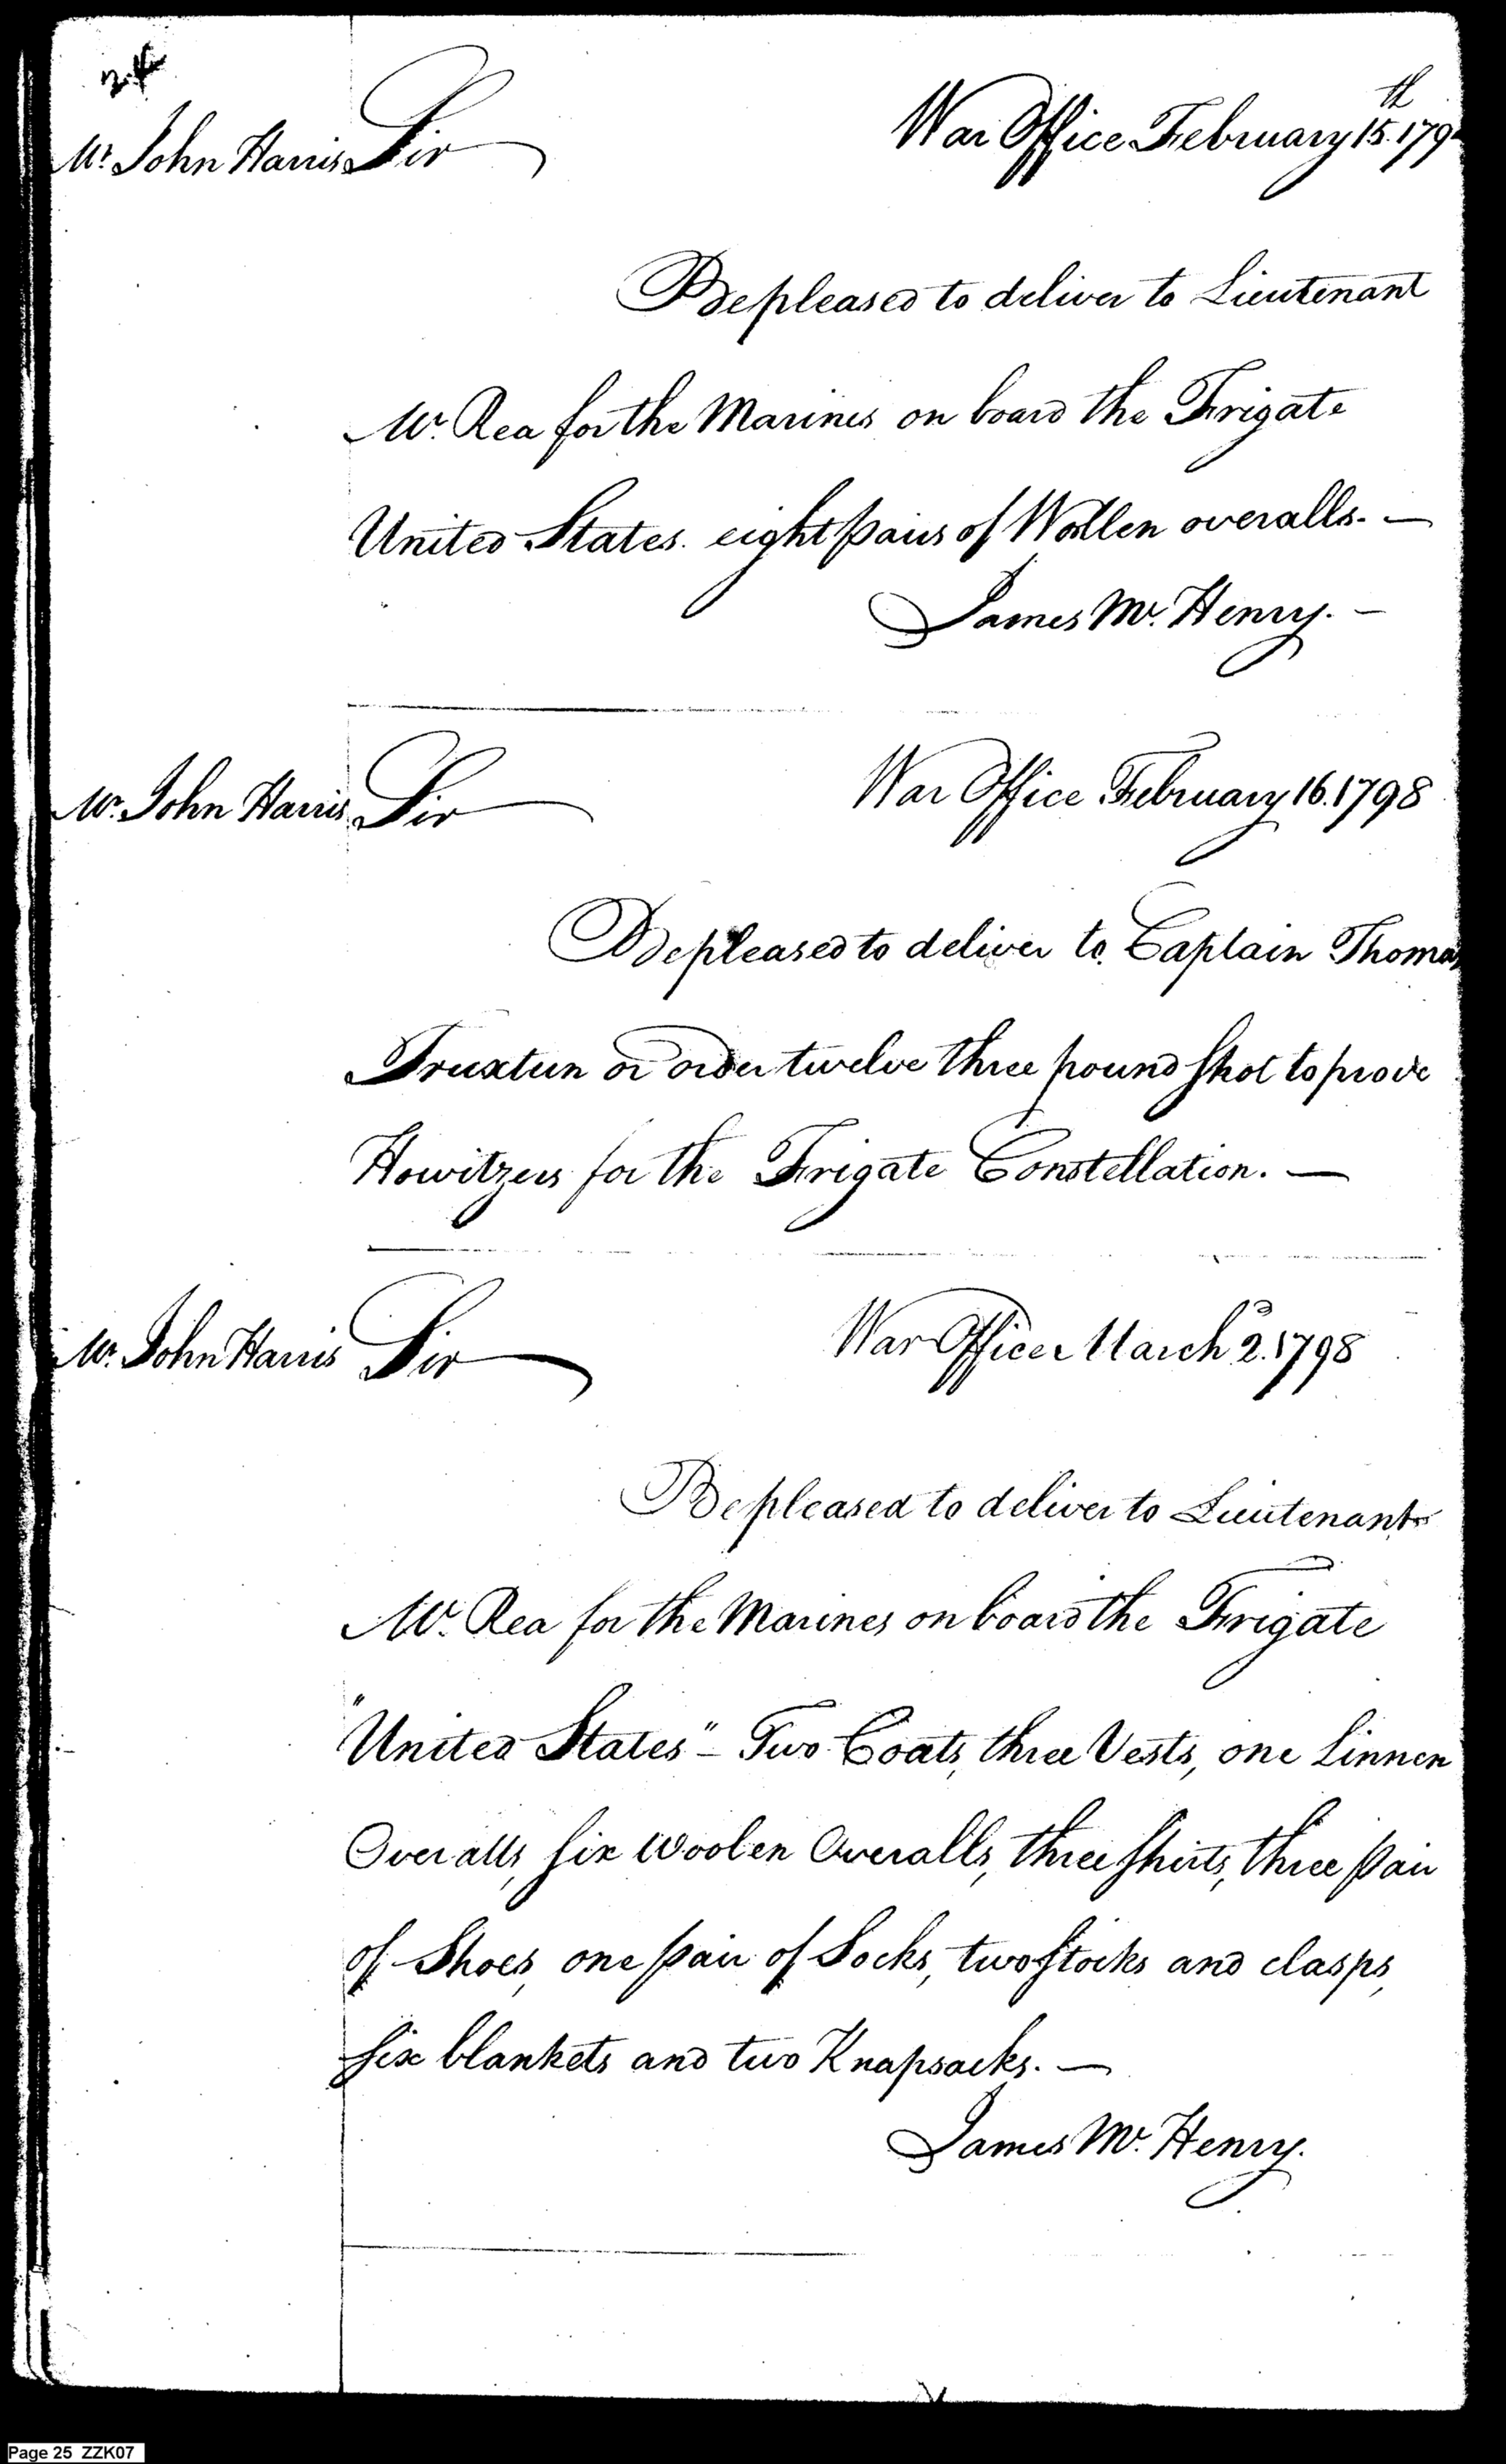 24
Mr. John Harris Sir War Office February 15th. 179
Be pleased to deliver to Lieutenant
Mc. Rea for the Marines on board the Frigate
United States. eight pairs of Wollen overalls. —
James Mc. Henry. —
Mr. John Harris Sir War Office February 16. 1798
Be pleased to deliver to Captain Thomas
Truxtun or order twelve three pound shot to prove
Howitzers for the Frigate Constellation. —
Mr. John Harris Sir War Office March 2d. 1798
Be pleased to deliver to Lieutenant
Mc. Rea for the Marines on board the Frigate
"United States" – Two Coats, three Vests, one Linnen
Overalls, six Woolen Overalls, three shirts, three pair
of Shoes, one pair of Socks, two stocks and clasps,
six blankets and two Knapsacks. —
James Mc. Henry.
Page 25 ZZK07